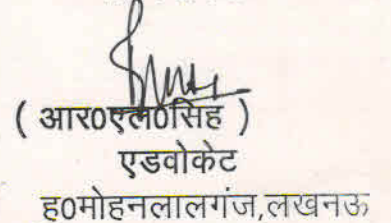 ( आर0एल0सिंह )
एडवोकेट
ह0मोहनलालगंज,लखनऊ